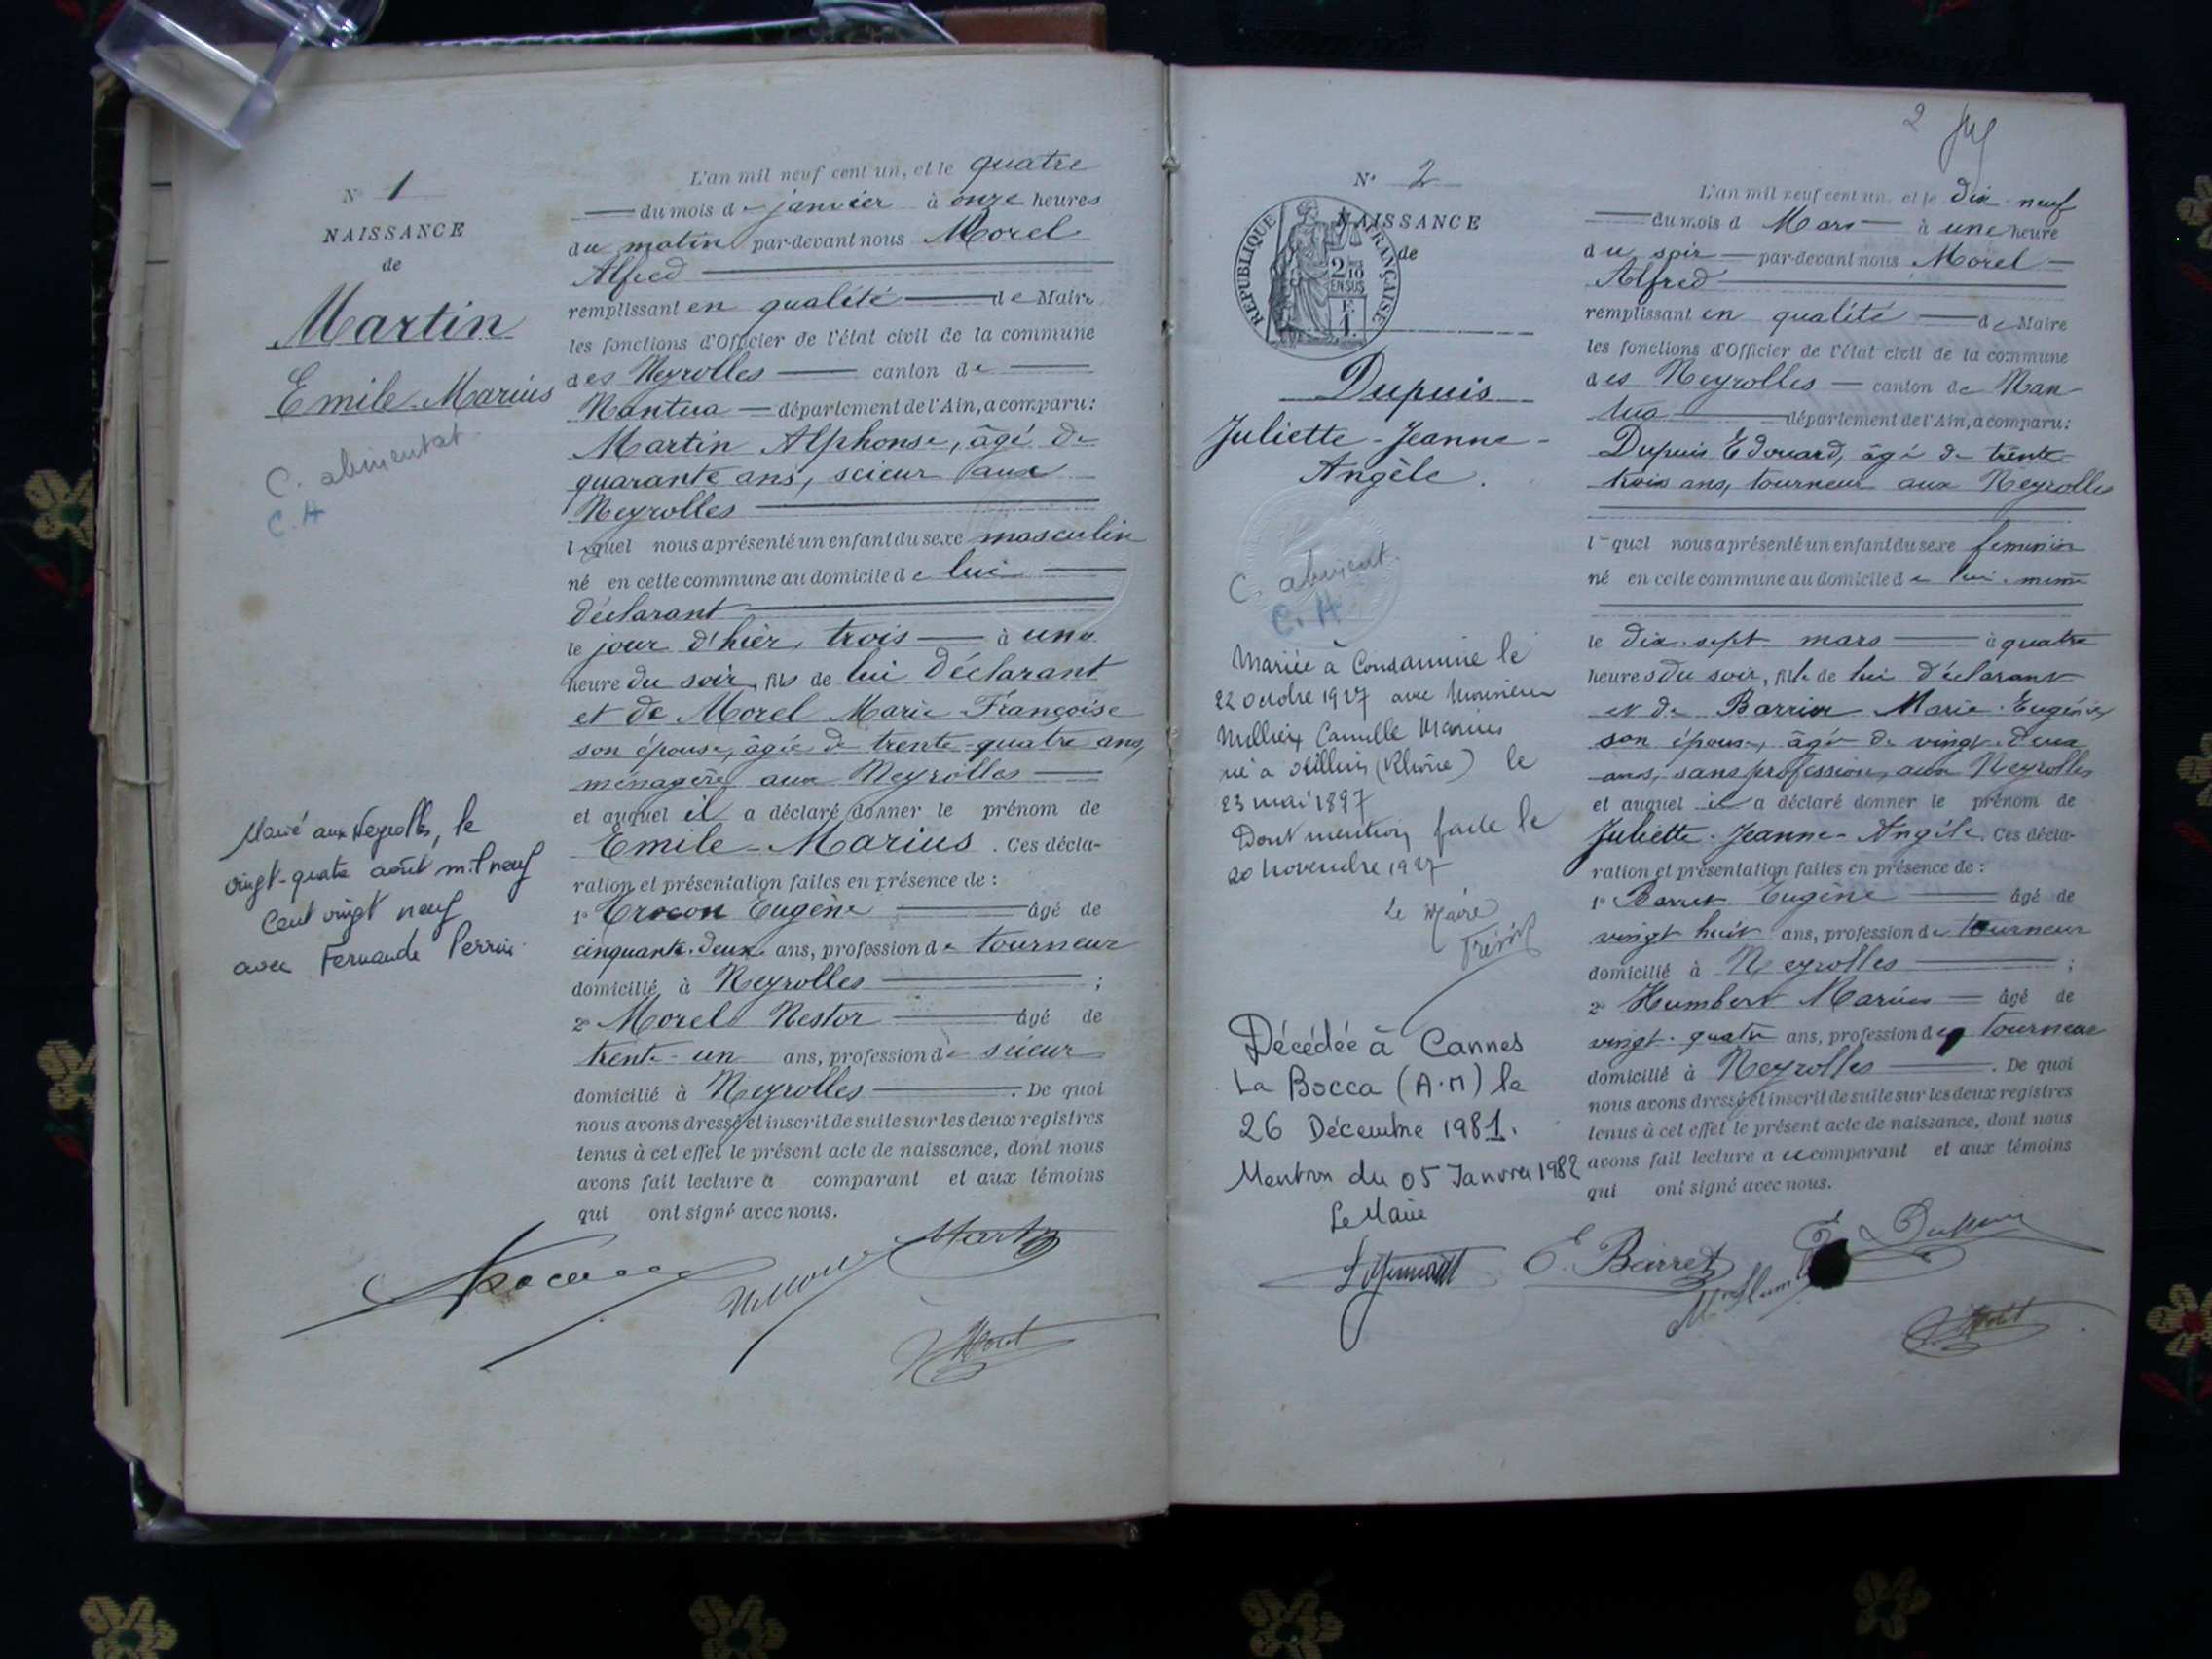 N° 1
NAISSANCE
de
Martin
Emile-Marius
C. aliment
C.A
Marié aux Neyrolles, le
vingt-quatre août mil neuf
cent vingt neuf
avec Fernande Perrin
L'an mil neuf cent un, et le quatre
du mois de janvier à onze heures
du matin par-devant nous Morel
Alfred
remplissant en qualité de Maire
les fonctions d'Officier de l'état civil de la commune
des Neyrolles canton de
Nantua département de l'Ain, a comparu:
Martin Alphonse, âgé de
quarante ans, scieur aux
Neyrolles
lequel nous a présenté un enfant du sexe masculin
né en cette commune au domicile de lui
déclarant
le jour d'hier, trois à une
heure du soir, fils de lui déclarant
et de Morel Marie-Françoise
son épouse, âgée de trente-quatre ans,
ménagère aux Neyrolles
et auquel il a déclaré donner le prénom de
Emile-Marius. Ces décla-
ration et présentation faites en présence de :
1° Crocon Eugène âgé de
cinquante-deux ans, profession de tourneur
domicilié à Neyrolles ;
2° Morel Nestor âgé de
trente-un ans, profession de scieur
domicilié à Neyrolles. De quoi
nous avons dressé et inscrit de suite sur les deux registres
tenus à cet effet le présent acte de naissance, dont nous
avons fait lecture a comparant et aux témoins
qui ont signé avec nous.
Martin
Morel
2
N° 2
NAISSANCE
de
REPUBLIQUE FRANÇAISE
2/10
EN SUS
Dupuis
Juliette-Jeanne-
Angèle.
C. aliment.
C.A
Mariée à Condamine le
22 octobre 1927 avec Monsieur
Camille Marius
né à Oullins (Rhône) le
23 mai 1897
Dont mention faite le
20 novembre 1927
Le Maire
Décédée à Cannes
La Bocca (A.M) le
26 Décembre 1981.
Mention du 05 Janvier 1982
Le Maire
L'an mil neuf cent un, et le dix-neuf
du mois d Mars à une heure
du soir par-devant nous Morel
Alfred
remplissant en qualité de Maire
les fonctions d'Officier de l'état civil de la commune
des Neyrolles canton de Nan-
tua département de l'Ain, a comparu:
Dupuis Edouard, âgé de trente-
trois ans, tourneur aux Neyrolles
lequel nous a présenté un enfant du sexe féminin
né en cette commune au domicile de lui-même
le dix-sept mars à quatre
heures du soir, fille de lui déclarant
et de Marie-Eugénie,
son épouse, âgée de vingt-deux
ans, sans profession, aux Neyrolles
et auquel il a déclaré donner le prénom de
Juliette-Jeanne-Angèle. Ces décla-
ration et présentation faites en présence de :
1° Barret Eugène âgé de
vingt huit ans, profession de tourneur
domicilié à Neyrolles ;
2° Humbert Marius âgé de
vingt-quatre ans, profession de tourneur
domicilié à Neyrolles. De quoi
nous avons dressé et inscrit de suite sur les deux registres
tenus à cet effet le présent acte de naissance, dont nous
avons fait lecture a comparant et aux témoins
qui ont signé avec nous.
E. Barret
E. Dupuis
Morel